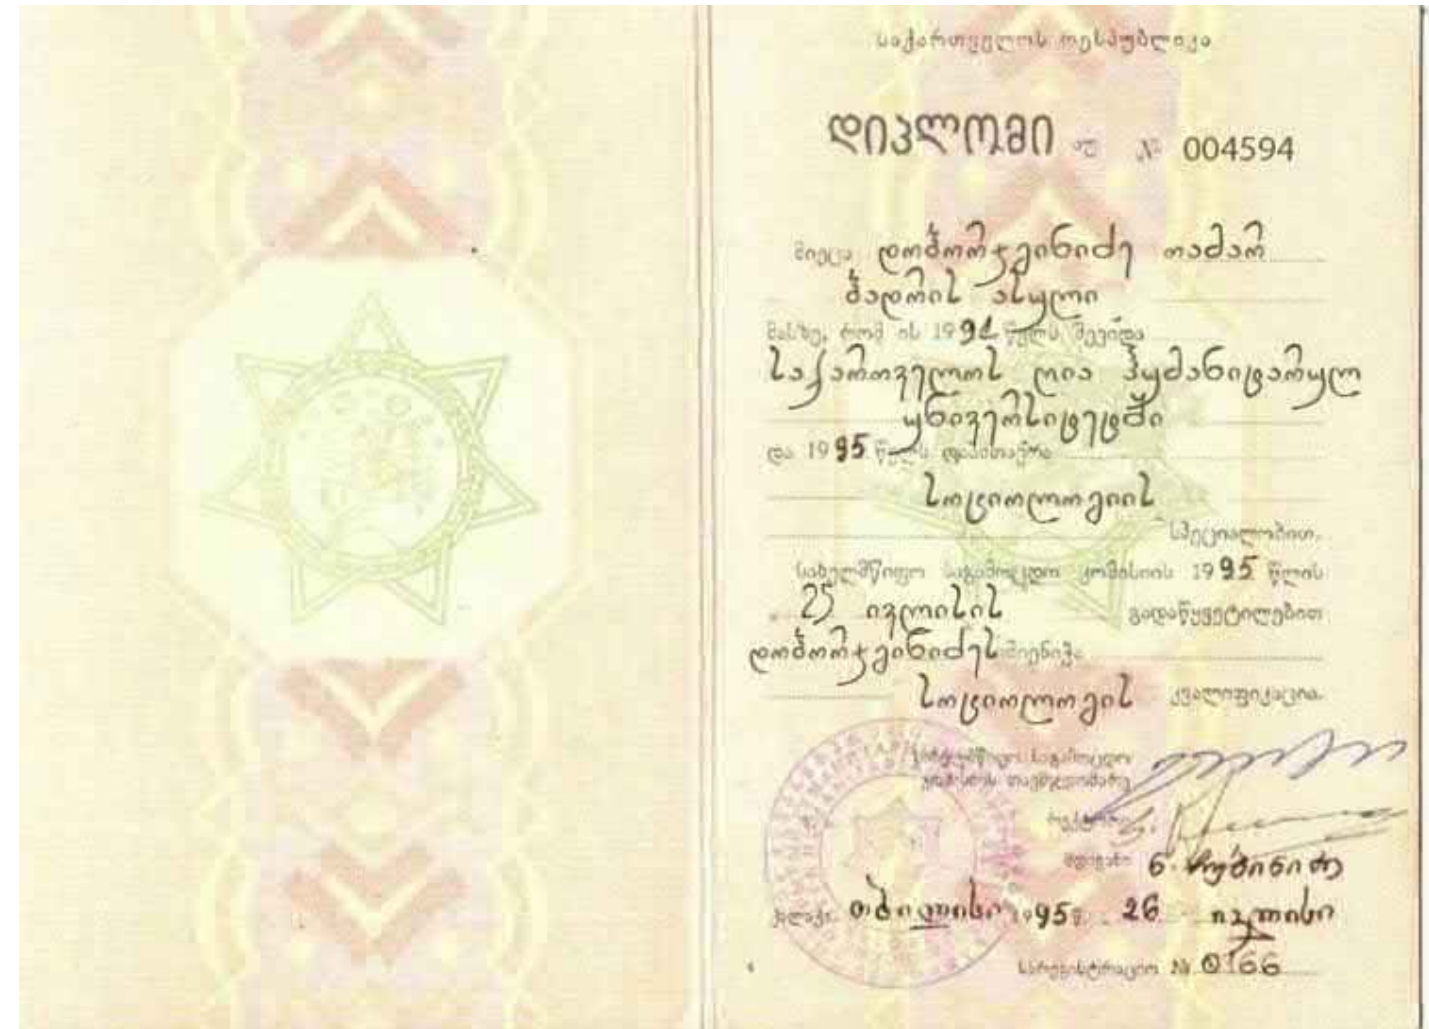 საქართველოს რესპუბლიკა
დიპლომი უ № 004594
მიეცა დობორჯგინიძე თამარ
ბადრის ასული
მასზე, რომ ის 1991 წელს შევიდა
საქართველოს ღია ჰუმანიტარულ
უნივერსიტეტში
და 1995 წელს დაამთავრა
სოციოლოგიის
სპეციალობით.
სახელმწიფო საგამოცდო კომისიის 1995 წლის
25 ივლისის გადაწყვეტილებით
დობორჯგინიძეს მიენიჭა
სოციოლოგის კვალიფიკაცია.
სახელმწიფო საგამოცდო
კომისიის თავმჯდომარე
რექტორი
მდივანი
ქალაქი თბილისი 1995 წ. 26 ივლისი
სარეგისტრაციო № 0166